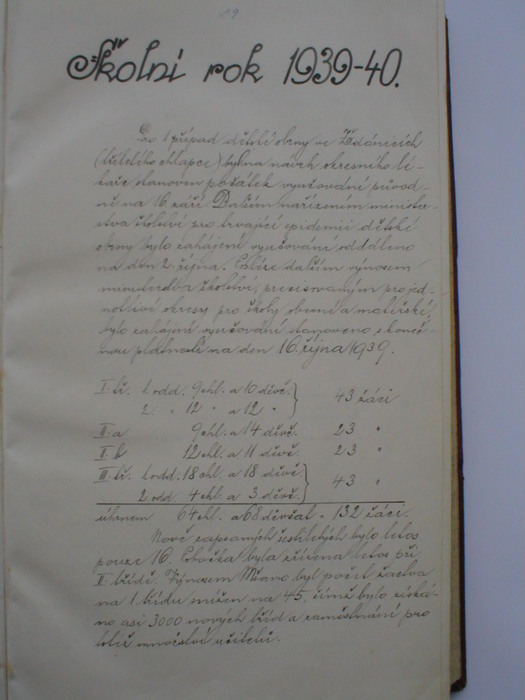 19
Školní rok 1939-40.
Za 1 případ dětské obrny ve Ždánicích
chlapce) byl na návrh okresního lé-
kaře stanoven počátek vyučování původ-
ně na 16. září. Dalším nařízením minister-
stva školství pro trvající epidemii dětské
obrny bylo zahájení vyučování oddáleno
na den 2. října. Posléze dalším výnosem
ministerstva školství, precisovaným pro jed-
notlivé okresy pro školy obecné a mateřské,
bylo zahájení vyučování stanoveno s koneč-
nou platností na den 16. října 1939.
I. tř. 1. odd. 9 chl. a 10 děvč. } 43 žáci
2. " 12 " a 12 "
II. a 9 chl. a 14 děvč. 23 "
b 12 chl. a 11 děvč. 23 "
III. tř. 1. odd. 18 chl. a 18 děvč. } 43 "
2. odd. 4 chl. a 3 děvč.
úhrnem 64 chl. a 68 děvčat = 132 žáci.
Nově zapsaných šestiletých bylo letos
pouze 16. Pobočka byla zřízena letos při
II. třídě. Výnosem byl počet žactva
na 1 třídu snížen na 45, čímž bylo získá-
no asi 3000 nových tříd a zaměstnání pro
množství učitelů.